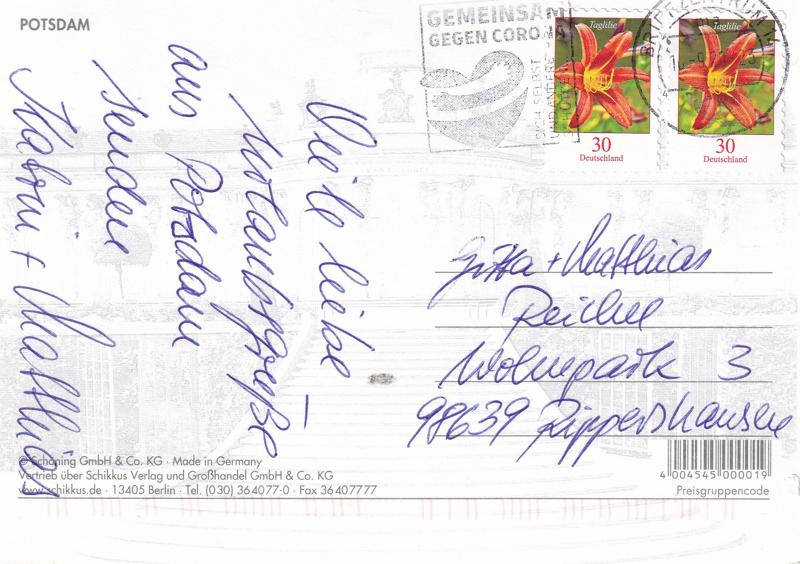 POTSDAM
GEMEINSAM
GEGEN CORONA
SICH SELBST
UND ANDERE
SCHÜTZEN
BRIEFZENTRUM 14
Taglilie
30
Deutschland
Taglilie
30
Deutschland
Viele liebe
Urlaubsgrüße
aus Potsdam
senden
+ Matthias
Gitta + Matthias
Wohnpark 3
98639 Rippershausen
© Schöning GmbH & Co. KG · Made in Germany
Vertrieb über Schikkus Verlag und Großhandel GmbH & Co. KG
www.schikkus.de · 13405 Berlin · Tel. (030) 364077-0 · Fax 36407777
4 004545 000019
Preisgruppencode